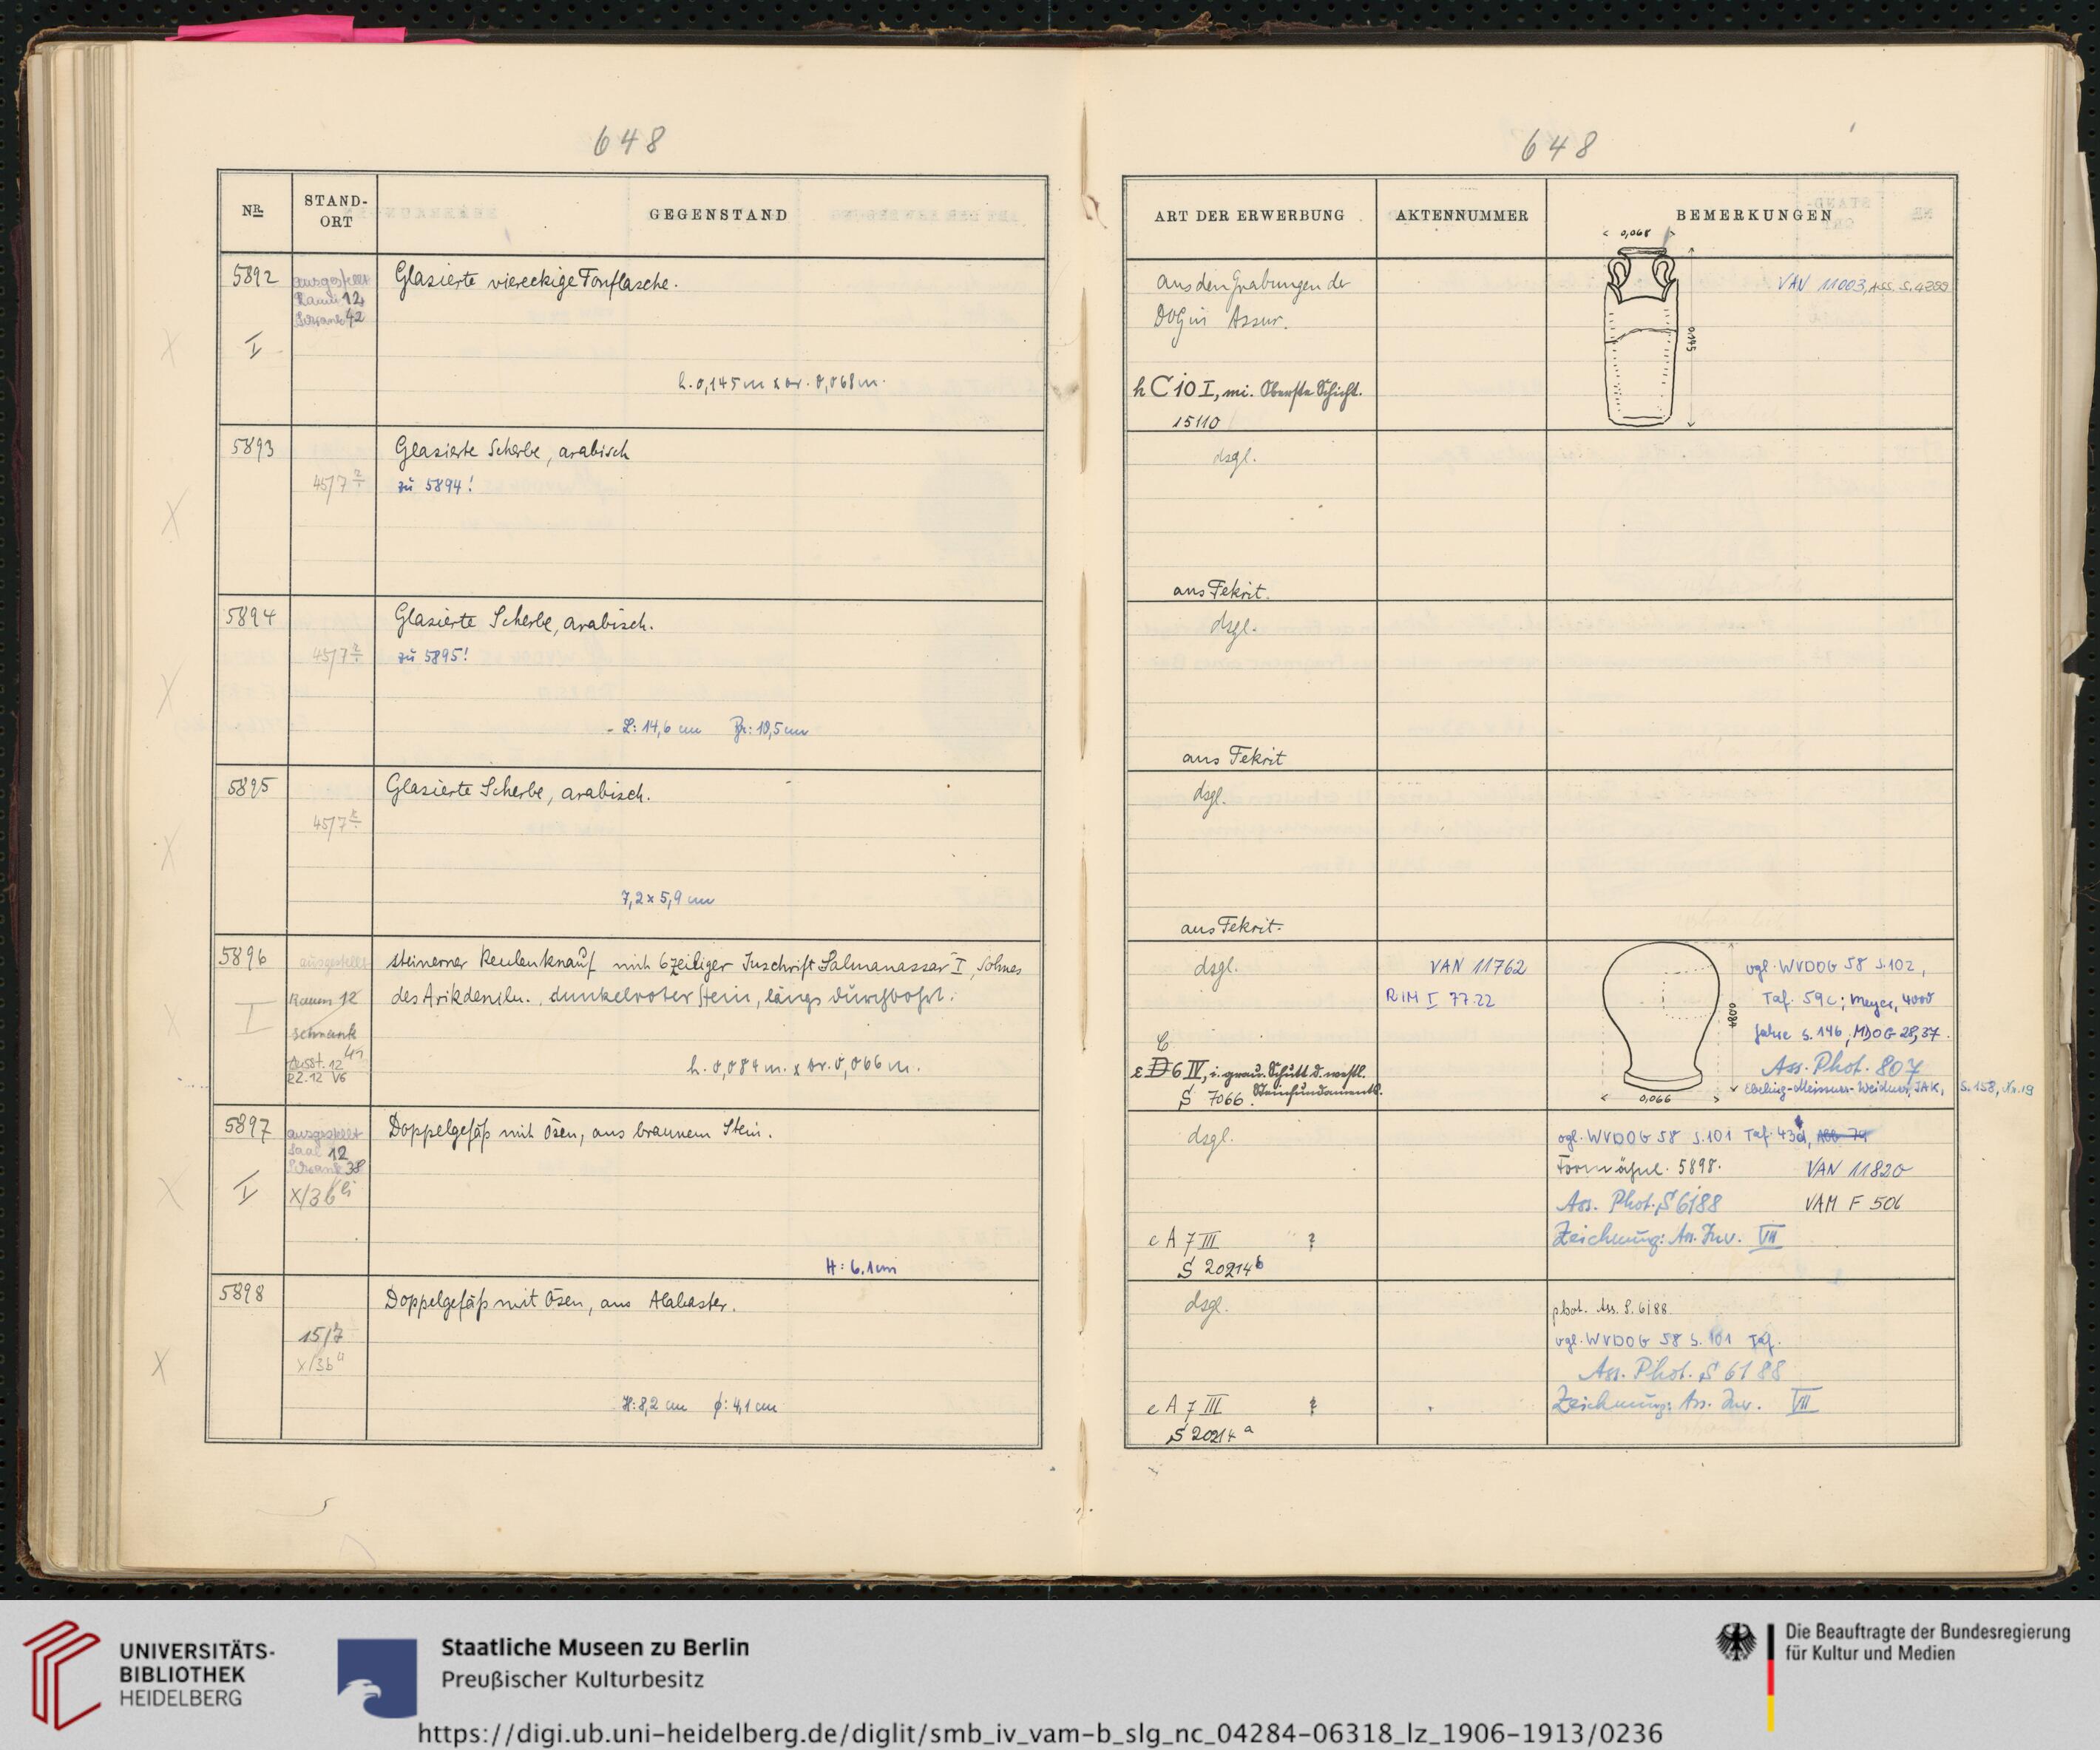 648
NR.
STAND-
ORT
GEGENSTAND
5892
ausgestellt
Raum 12
Schrank 42
I
Glasierte viereckige Tonflasche.
h. 0,145 m x br. 0,068 m.
5893
45/7
Glasierte Scherbe, arabisch
zu 5894!
5894
45/7
Glasierte Scherbe, arabisch.
zu 5895!
- L: 14,6 cm Br: 10,5 cm
5895
45/7
Glasierte Scherbe, arabisch.
7,2 x 5,9 cm
5896
I
ausgestellt
Raum 12
Schrank
Ausst. 12
RZ.12 V6
steinerner Keulenknauf mit 6zeiliger Inschrift Salmanassar I, Sohnes
des Arikdenilu., dunkelroter Stein, längs durchbohrt.
h. 0,084 m. x br. 0,066 m.
5897
I
ausgestellt
Saal 12
Schrank 38
X/3b
Doppelgefäß mit Ösen, aus braunem Stein.
H: 6.1cm
5898
15/7
X/3b
Doppelgefäß mit Ösen, aus Alabaster.
H: 8,2 cm ϕ: 4,1 cm
648
ART DER ERWERBUNG
AKTENNUMMER
BEMERKUNGEN
aus den Grabungen der
DOG in Assur.
h C 10 I, mi. Oberste Schicht.
15110
0,068
0,145
VAN 11003, Ass. S. 4200
dsgl.
aus Tekrit.
dsgl.
aus Tekrit
dsgl.
aus Tekrit.
dsgl.
C
ε D 6 IV, i. grau. Schutt d. westl.
Steinfundaments.
S 7066.
VAN 11762
RIM I 77.22
0,084
0,066
vgl. WVDOG 58 S. 102,
Taf. 59c; Meyer, 4000
Jahre S. 146, MDOG 28, 37.
Ass. Phot. 807
Ebeling-Meissner-Weidner, IAK, S. 158, Nr. 19
dsgl.
e A 7 III ?
S 20214 b
vgl. WVDOG 58 S. 101 Taf. 43d, Abb 74
Form ähnl. 5898. VAN 11820
Ass. Phot. S 6188 VAM F 506
Zeichnung: Ass. Inv. VII
dsgl.
e A 7 III ?
S 20214 a
phot. Ass. S. 6188
vgl. WVDOG 58 S. 101 Taf.
Ass. Phot. S 6188
Zeichnung: Ass. Inv. VII
UNIVERSITÄTS-
BIBLIOTHEK
HEIDELBERG
Staatliche Museen zu Berlin
Preußischer Kulturbesitz
Die Beauftragte der Bundesregierung
für Kultur und Medien
https://digi.ub.uni-heidelberg.de/diglit/smb_iv_vam-b_slg_nc_04284-06318_lz_1906-1913/0236